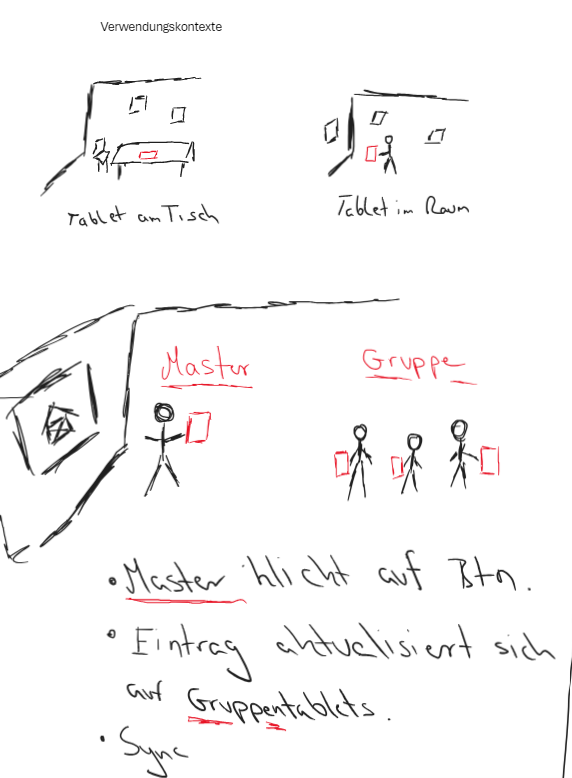 Verwendungskontexte
Tablet am Tisch
Tablet im Raum
Master
Gruppe
• Master klickt auf Btn.
• Eintrag aktualisiert sich
auf Gruppentablets.
• Sync